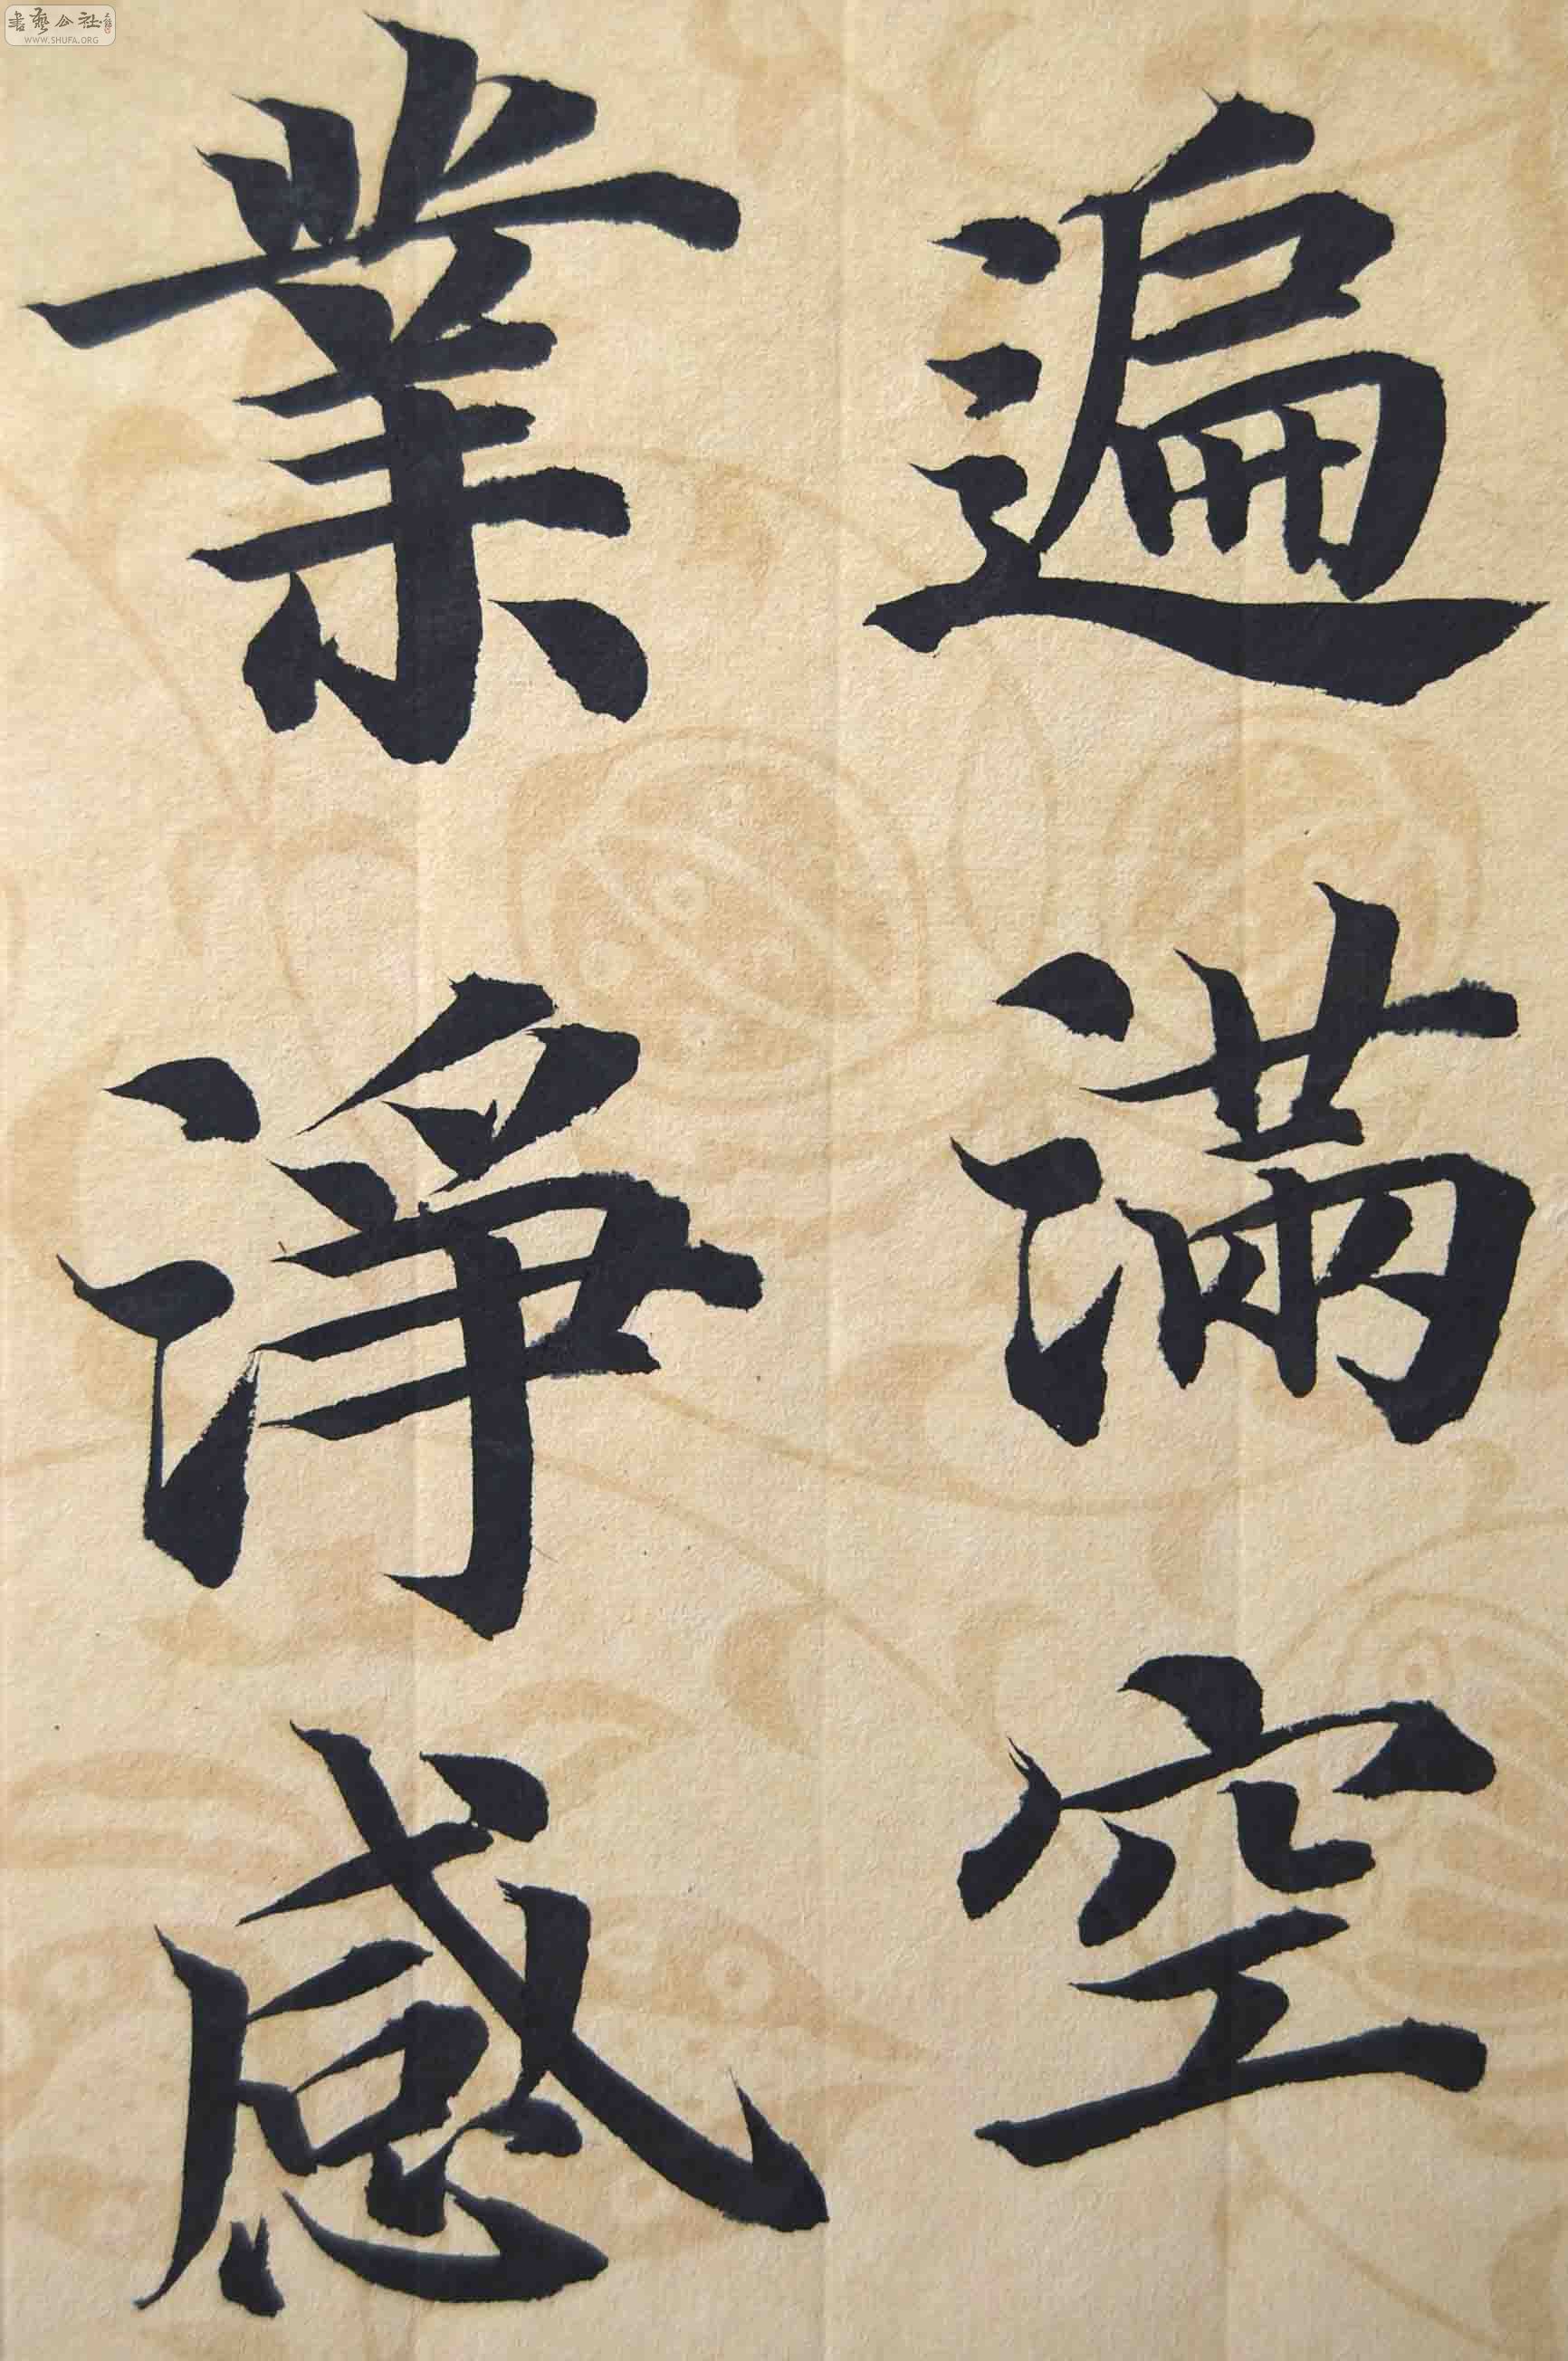 遍滿空
業淨感
書藝公社
WWW.SHUFA.ORG